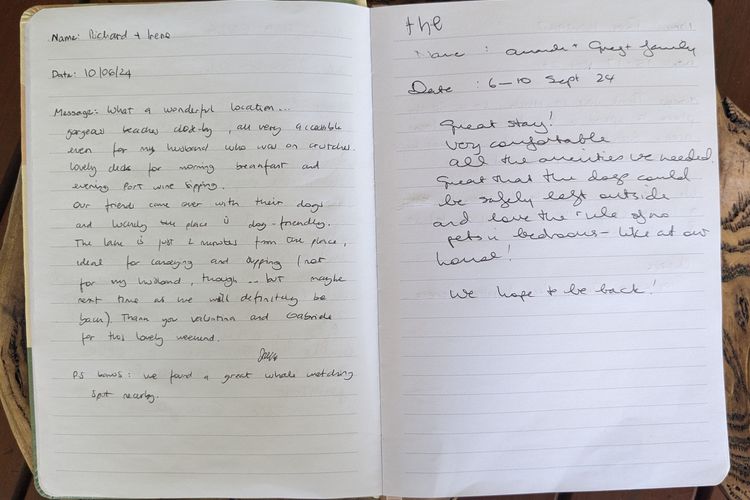 Name: Richard + Irene
Date: 10/06/24
Message: What a wonderful location...
gorgeous beaches close-by, all very accessible
even for my husband who was on crutches.
Lovely deck for morning breakfast and
evening Port wine sipping.
Our friends came over with their dogs
and luckily the place is dog-friendly.
The lake is just 2 minutes from the place,
ideal for canoeing and dipping (not
for my husband, though... but maybe
next time as we will definitely be
back) Thank you Valentina and Gabriele
for this lovely weekend.
PS bonus: we found a great whale watching
spot nearby.
the
Name: & Greg + family
Date: 6-10 Sept 24
Great stay!
Very comfortable
all the amenities we needed.
Great that the dogs could
be safely left outside
and love the rule of no
pets in bedrooms - like at our
house!
We hope to be back!